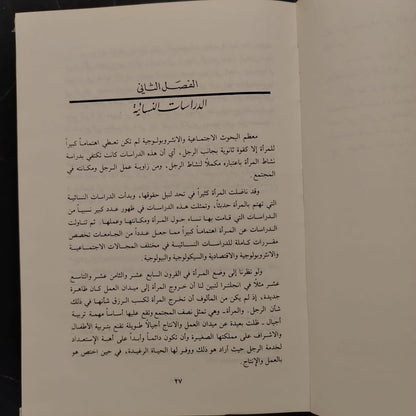 الفصل الثاني
الدراسات النسائية
معظم البحوث الاجتماعية والانثروبولوجية لم تكن تعطي اهتماماً كبيراً
للمرأة إلا كقوة ثانوية بجانب الرجل، أي أن هذه الدراسات كانت تكتفي بدراسة
نشاط المرأة باعتباره مكملاً لنشاط الرجل، ومن زاوية عمل الرجل ومكانته في
المجتمع.
وقد ناضلت المرأة كثيراً في تحد لنيل حقوقها، وبدأت الدراسات النسائية
التي تهتم بالمرأة حديثاً، وتمثلت هذه الدراسات في ظهور عدد كبير نسبياً من
الدراسات التي قامت بها نساء حول المرأة ومكانتها وعملها. ثم تناولت
الدراسات عن المرأة اهتماماً كبيراً مما جعل عدداً من الجامعات تخصص
مقررات كاملة للدراسات النسائية في مختلف المجالات الاجتماعية
والانثروبولوجية والاقتصادية والسيكولوجية والبيولوجية.
ولو نظرنا إلى وضع المرأة في القرون السابع عشر والثامن عشر والتاسع
عشر مثلاً في انجلترا لتبين لنا أن خروج المرأة إلى ميدان العمل كان ظاهرة
جديدة، إذ لم يكن من المألوف أن تخرج المرأة لكسب الرزق شأنها في ذلك
شأن الرجل. والمرأة ـ وهي تمثل نصف المجتمع وتقع عليها أساساً مهمة تربية
أجيال ـ ظلت بعيدة عن ميدان العمل والانتاج أجيالاً طويلة تقنع بتربية الأطفال
والاشراف على مملكتها الصغيرة وأن تكون دائماً وأبداً على أهبة الإستعداد
لخدمة الرجل حيث أراد هو ذلك ووفر لها الحياة الرغيدة، في حين اختص هو
بالعمل والإنتاج.
٢٧